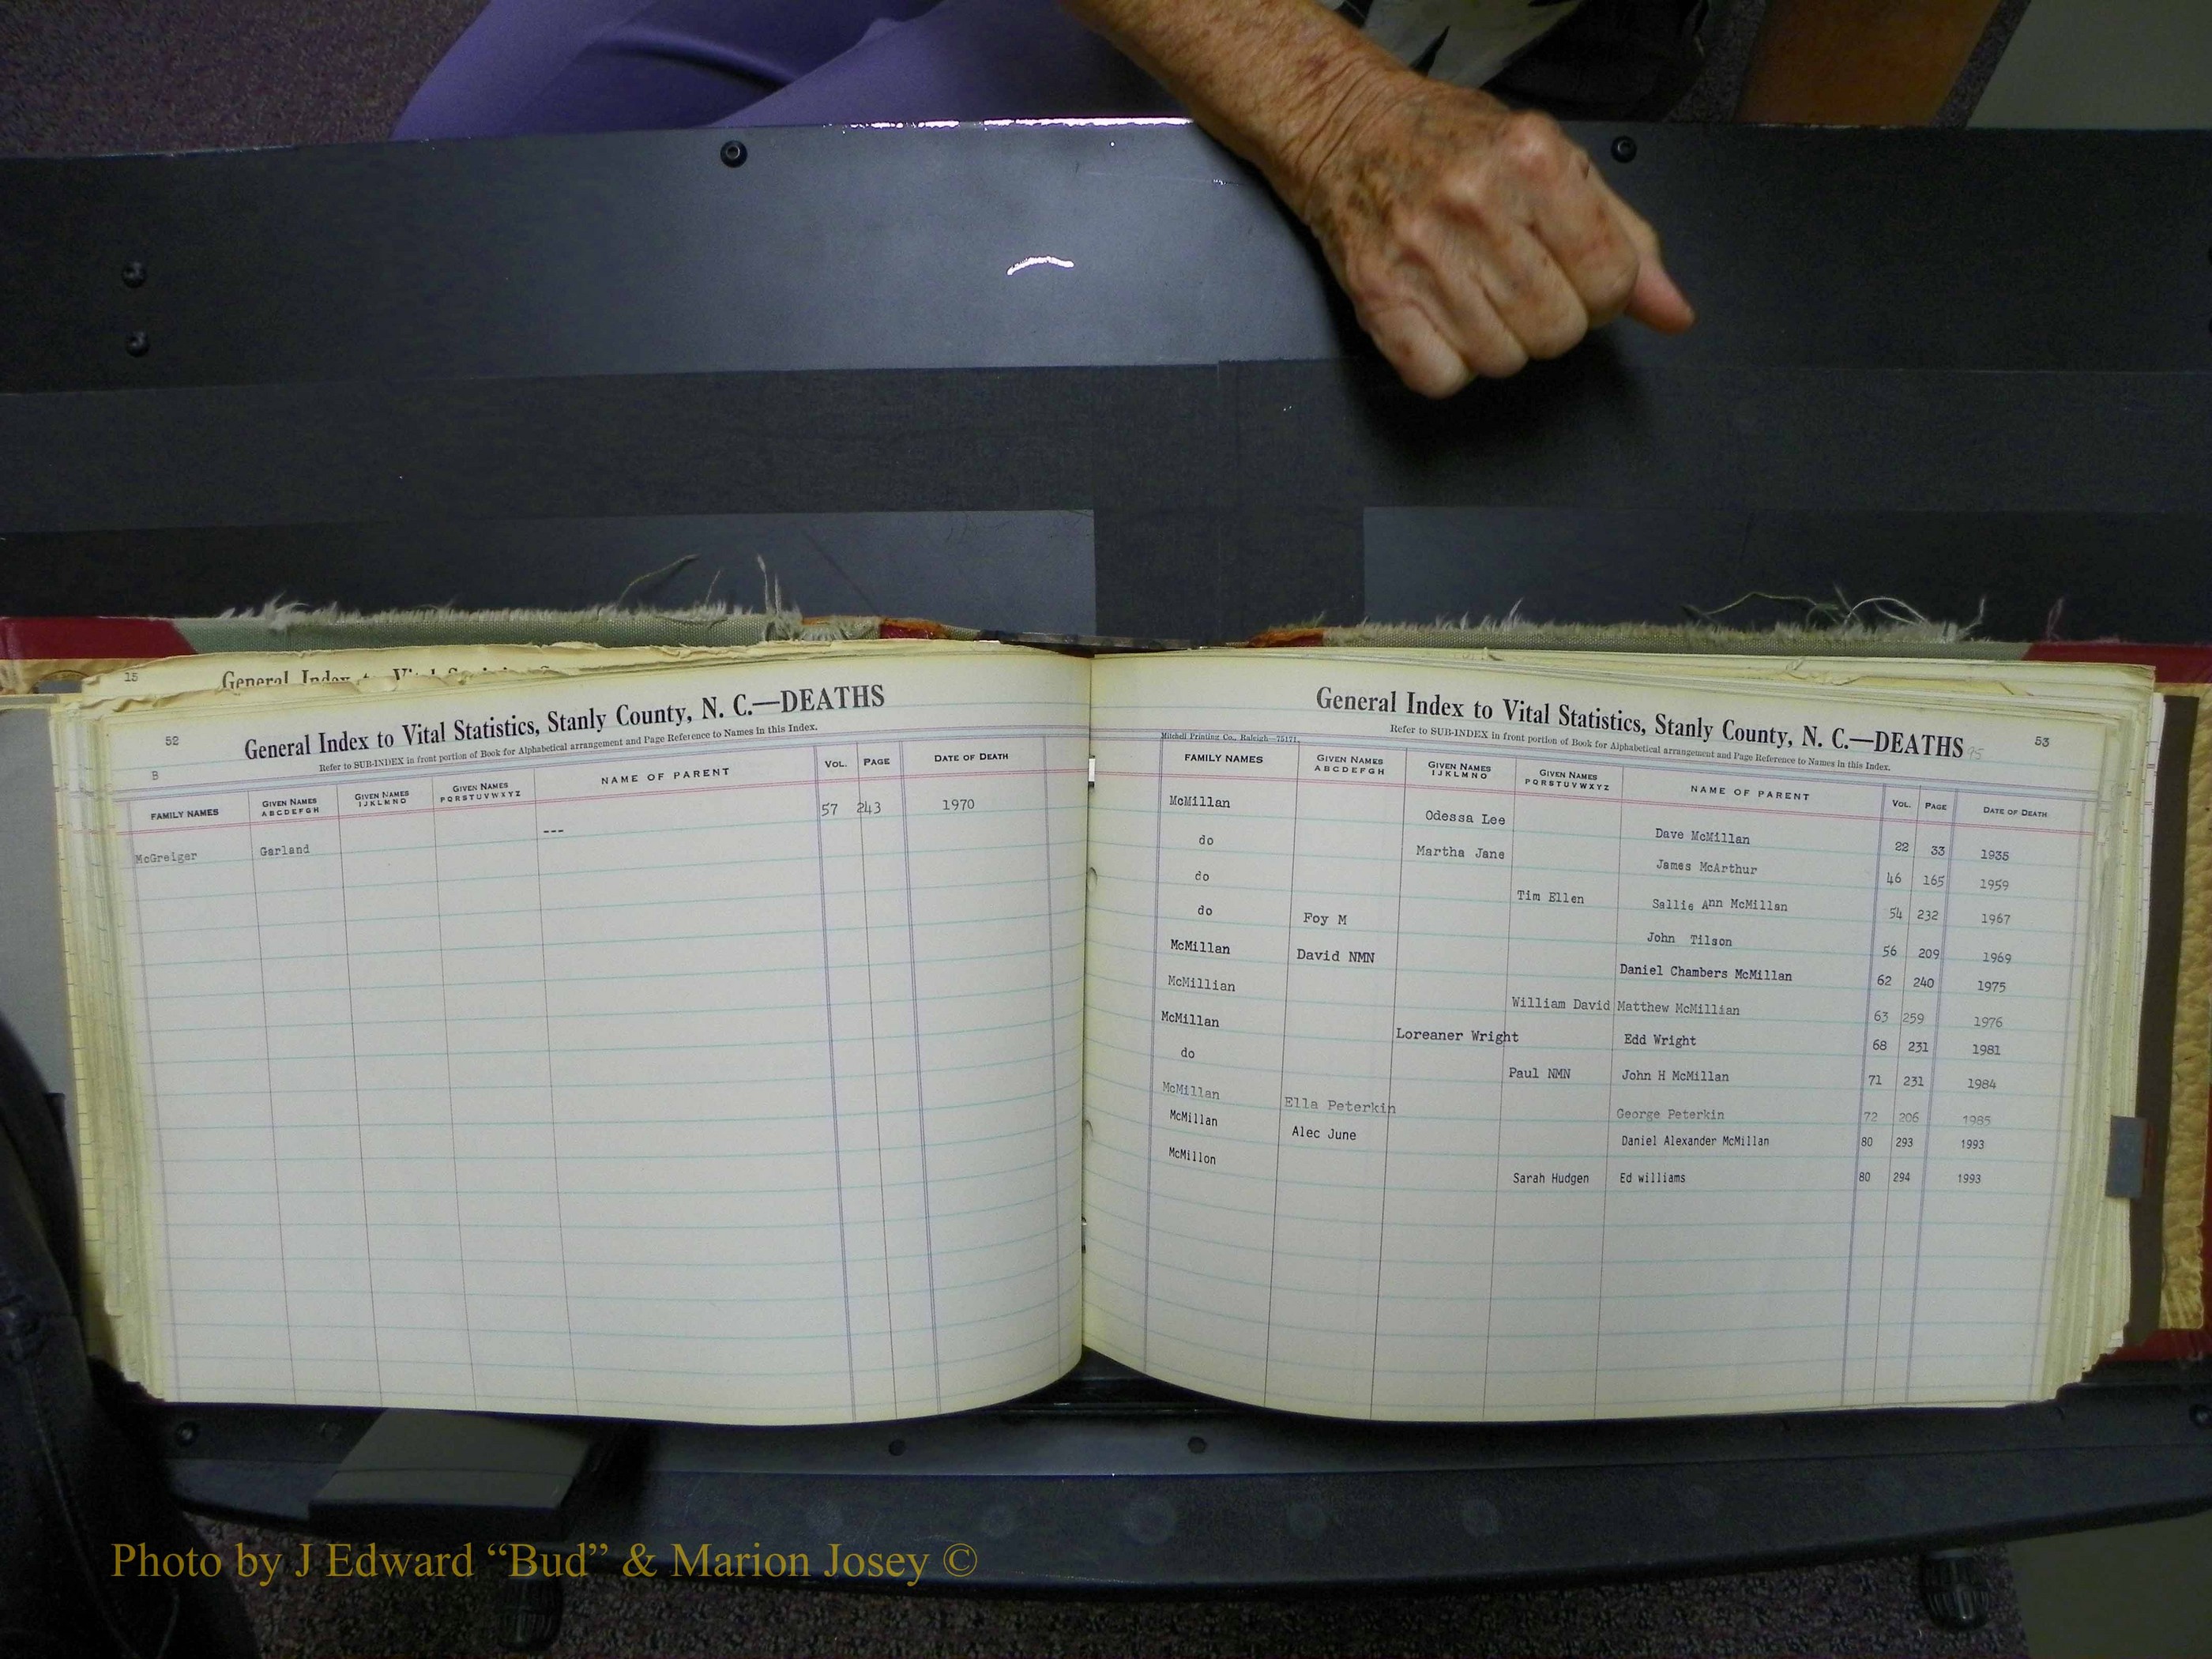 15
General Index to Vital Statistics
52
General Index to Vital Statistics, Stanly County, N. C.—DEATHS
Refer to SUB-INDEX in front portion of Book for Alphabetical arrangement and Page Reference to Names in this Index.
B
FAMILY NAMES GIVEN NAMES ABCDEFGH GIVEN NAMES IJKLMNO GIVEN NAMES PQRSTUVWXYZ NAME OF PARENT VOL. PAGE DATE OF DEATH
McGreiger Garland --- 57 243 1970
General Index to Vital Statistics, Stanly County, N. C.—DEATHS
53
95
Refer to SUB-INDEX in front portion of Book for Alphabetical arrangement and Page Reference to Names in this Index.
Mitchell Printing Co., Raleigh—75171.
FAMILY NAMES GIVEN NAMES ABCDEFGH GIVEN NAMES IJKLMNO GIVEN NAMES PQRSTUVWXYZ NAME OF PARENT VOL. PAGE DATE OF DEATH
McMillan Odessa Lee Dave McMillan 22 33 1935
do Martha Jane James McArthur 46 165 1959
do Tim Ellen Sallie Ann McMillan 54 232 1967
do Foy M John Tilson 56 209 1969
McMillan David NMN Daniel Chambers McMillan 62 240 1975
McMillian William David Matthew McMillian 63 259 1976
McMillan Loreaner Wright Edd Wright 68 231 1981
do Paul NMN John H McMillan 71 231 1984
McMillan Ella Peterkin George Peterkin 72 206 1985
McMillan Alec June Daniel Alexander McMillan 80 293 1993
McMillon Sarah Hudgen Ed williams 80 294 1993
Photo by J Edward “Bud” & Marion Josey ©